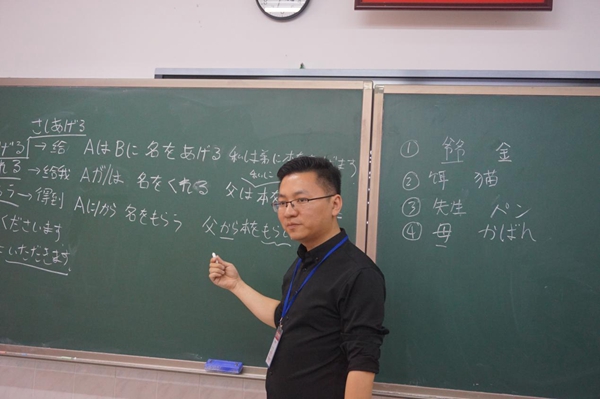 さしあげる
げる → 给 AはBに名をあげる 私は弟に本をあげる
れる → 给我 Aが/は 名をくれる 父は本
らう → 得到 Aに/から 名をもらう 父から本をもら
くださいます
いただきます
① 金
② 饵 猫
③ 先生 ペン
④ 母 かばん